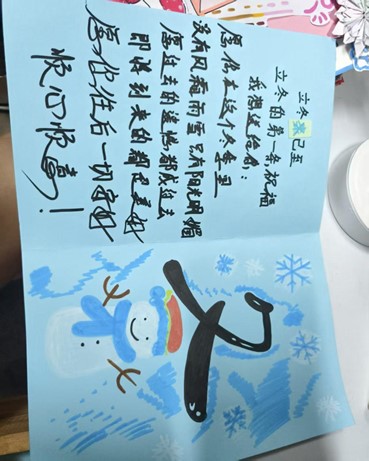 立冬已至
立冬的第一条祝福
我想送给你：
愿你在这个冬季里
没有风霜雨雪只有阳光明媚
愿过去的遗憾都成过去
即将到来的都是美好
愿你往后一切安好
心喜！
冬